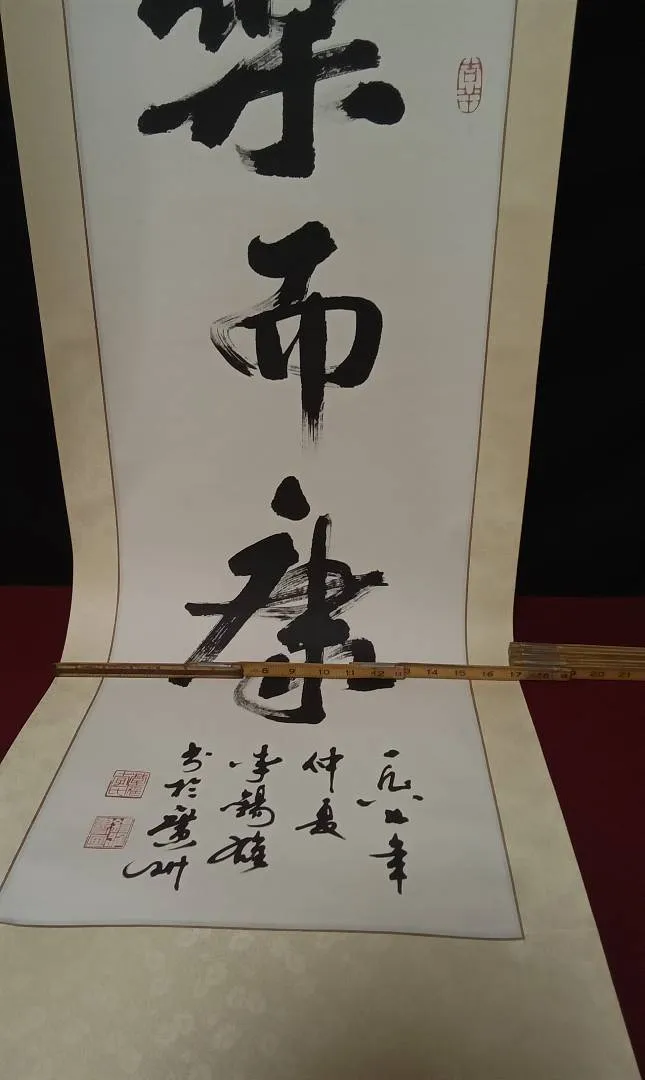 樂而康
一九八七年
仲夏
李錫雄
书於廣州
8 9 10 11 12 13 14 15 16 17 18 9 20 21